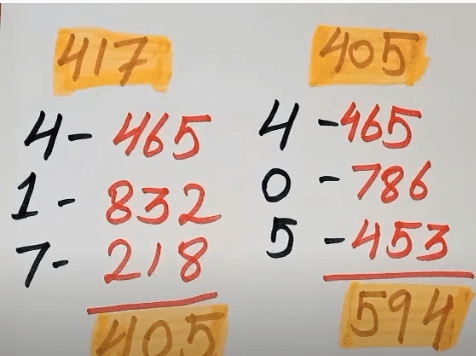 417
4- 465
1- 832
7- 218
405
405
4-465
0-786
5-453
594